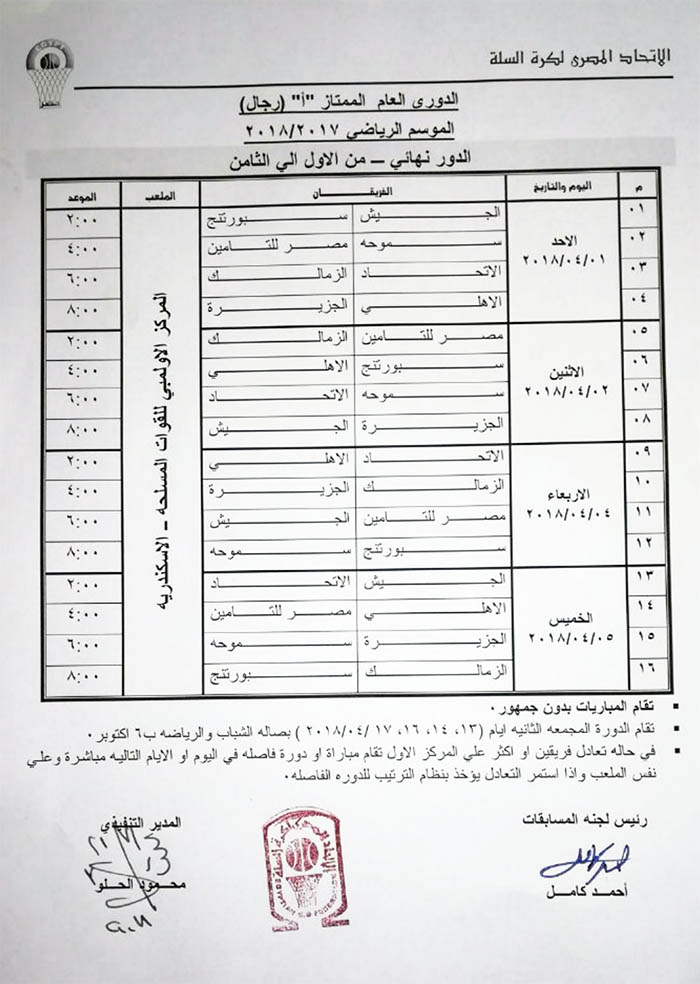 الاتحاد المصرى لكرة السلة
الدورى العام الممتاز "أ" (رجال)
الموسم الرياضي ٢٠١٨/٢٠١٧
الدور نهائي – من الاول الي الثامن
م اليوم والتاريخ الفريقان الملعب الموعد
٠١ الاحد ٢٠١٨/٠٤/٠١ الجيش سبورتنج المركز الاولمبي للقوات المسلحه – الاسكندريه ٢:٠٠
٠٢ سموحه مصر للتامين ٤:٠٠
٠٣ الاتحاد الزمالك ٦:٠٠
٠٤ الاهلي الجزيرة ٨:٠٠
٠٥ الاثنين ٢٠١٨/٠٤/٠٢ مصر للتامين الزمالك ٢:٠٠
٠٦ سبورتنج الاهلي ٤:٠٠
٠٧ سموحه الاتحاد ٦:٠٠
٠٨ الجزيرة الجيش ٨:٠٠
٠٩ الاربعاء ٢٠١٨/٠٤/٠٤ الاتحاد الاهلي ٢:٠٠
١٠ الزمالك الجزيرة ٤:٠٠
١١ مصر للتامين الجيش ٦:٠٠
١٢ سبورتنج سموحه ٨:٠٠
١٣ الخميس ٢٠١٨/٠٤/٠٥ الجيش الاتحاد ٢:٠٠
١٤ الاهلي مصر للتامين ٤:٠٠
١٥ الجزيرة سموحه ٦:٠٠
١٦ الزمالك سبورتنج ٨:٠٠
▪ تقام المباريات بدون جمهور٠
▪ تقام الدورة المجمعه الثانيه ايام (١٣، ١٤، ١٦، ١٧ /٢٠١٨/٠٤) بصاله الشباب والرياضه ب٦ اكتوبر٠
▪ في حاله تعادل فريقين او اكثر علي المركز الاول تقام مباراة او دورة فاصله في اليوم او الايام التاليه مباشرة وعلي
نفس الملعب واذا استمر التعادل يؤخذ بنظام الترتيب للدوره الفاصله٠
رئيس لجنه المسابقات المدير التنفيذي
أحمد كامل محمود الحلو